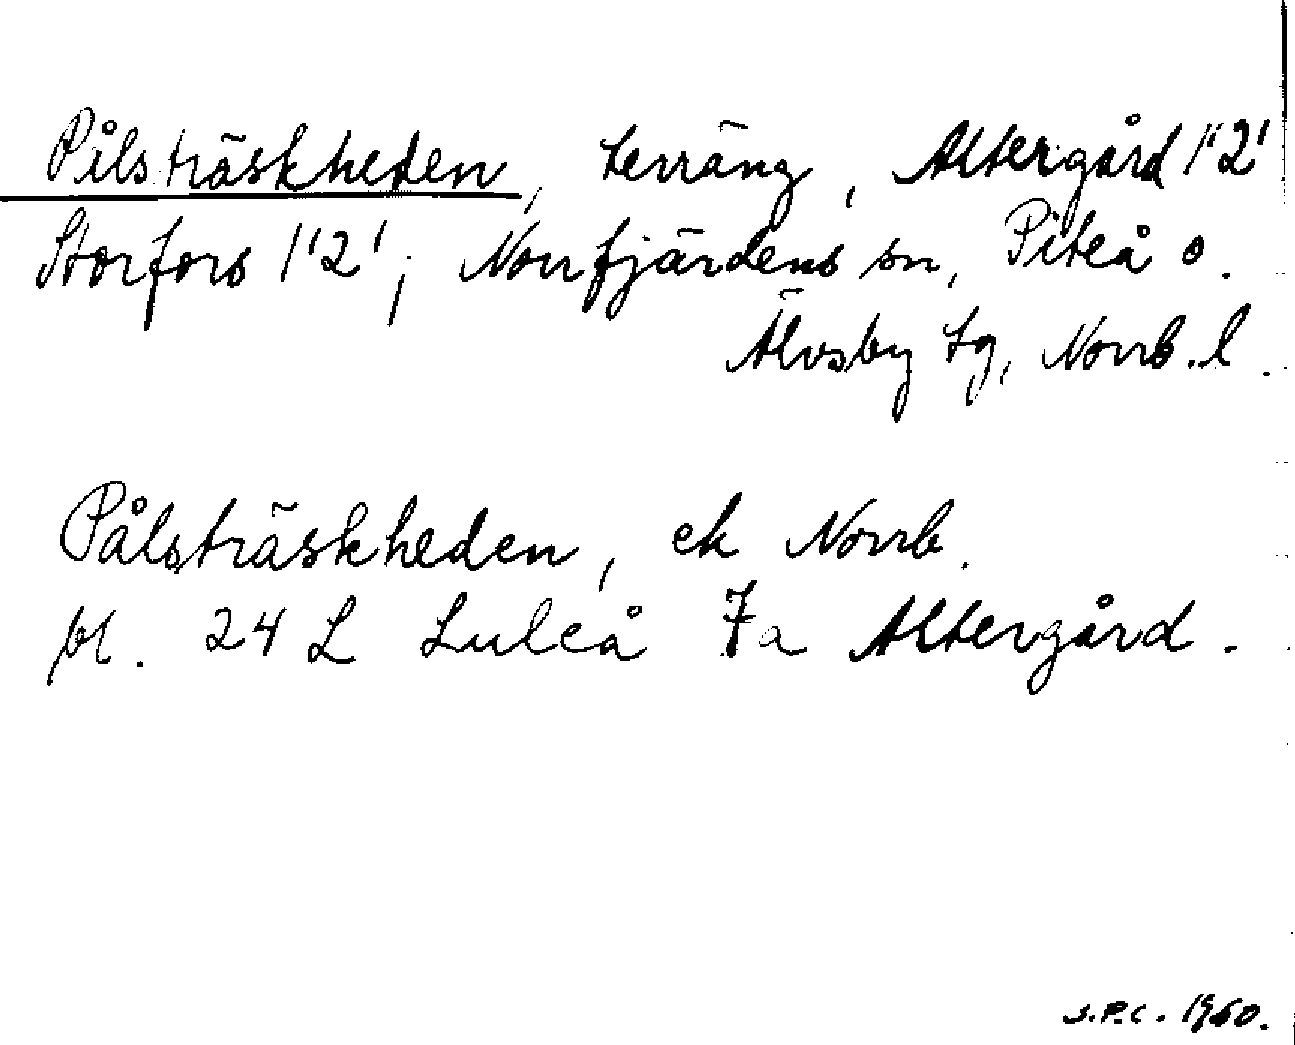 Pålsträskheden, terräng, Altergård 1'2'
Storfors 1'2', Norrfjärdens sn, Piteå o.
Älvsby tg, Norrb. l.
Pålsträskheden, ek Norrb.
bl. 24 L Luleå 7a Altergård.
J.P.C. 1960.